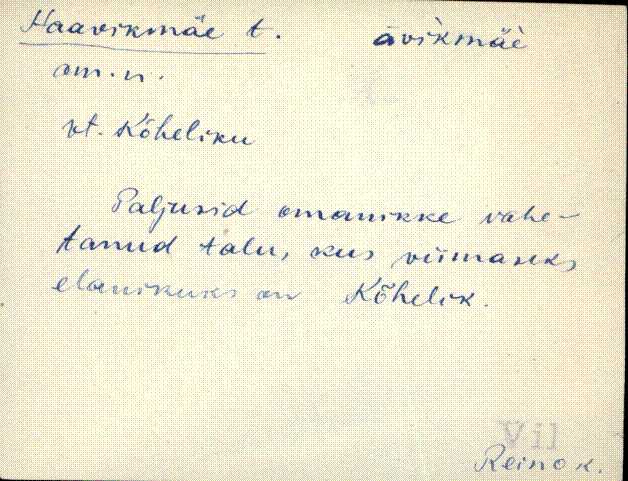 Haavikmäe t. àvìkmäè
om.n.
vt. Kõheliku
Paljusid omanikke vahe-
tanud talu, kus viimaseks
elanikuks on Kõhelik.
Vil
Reino k.